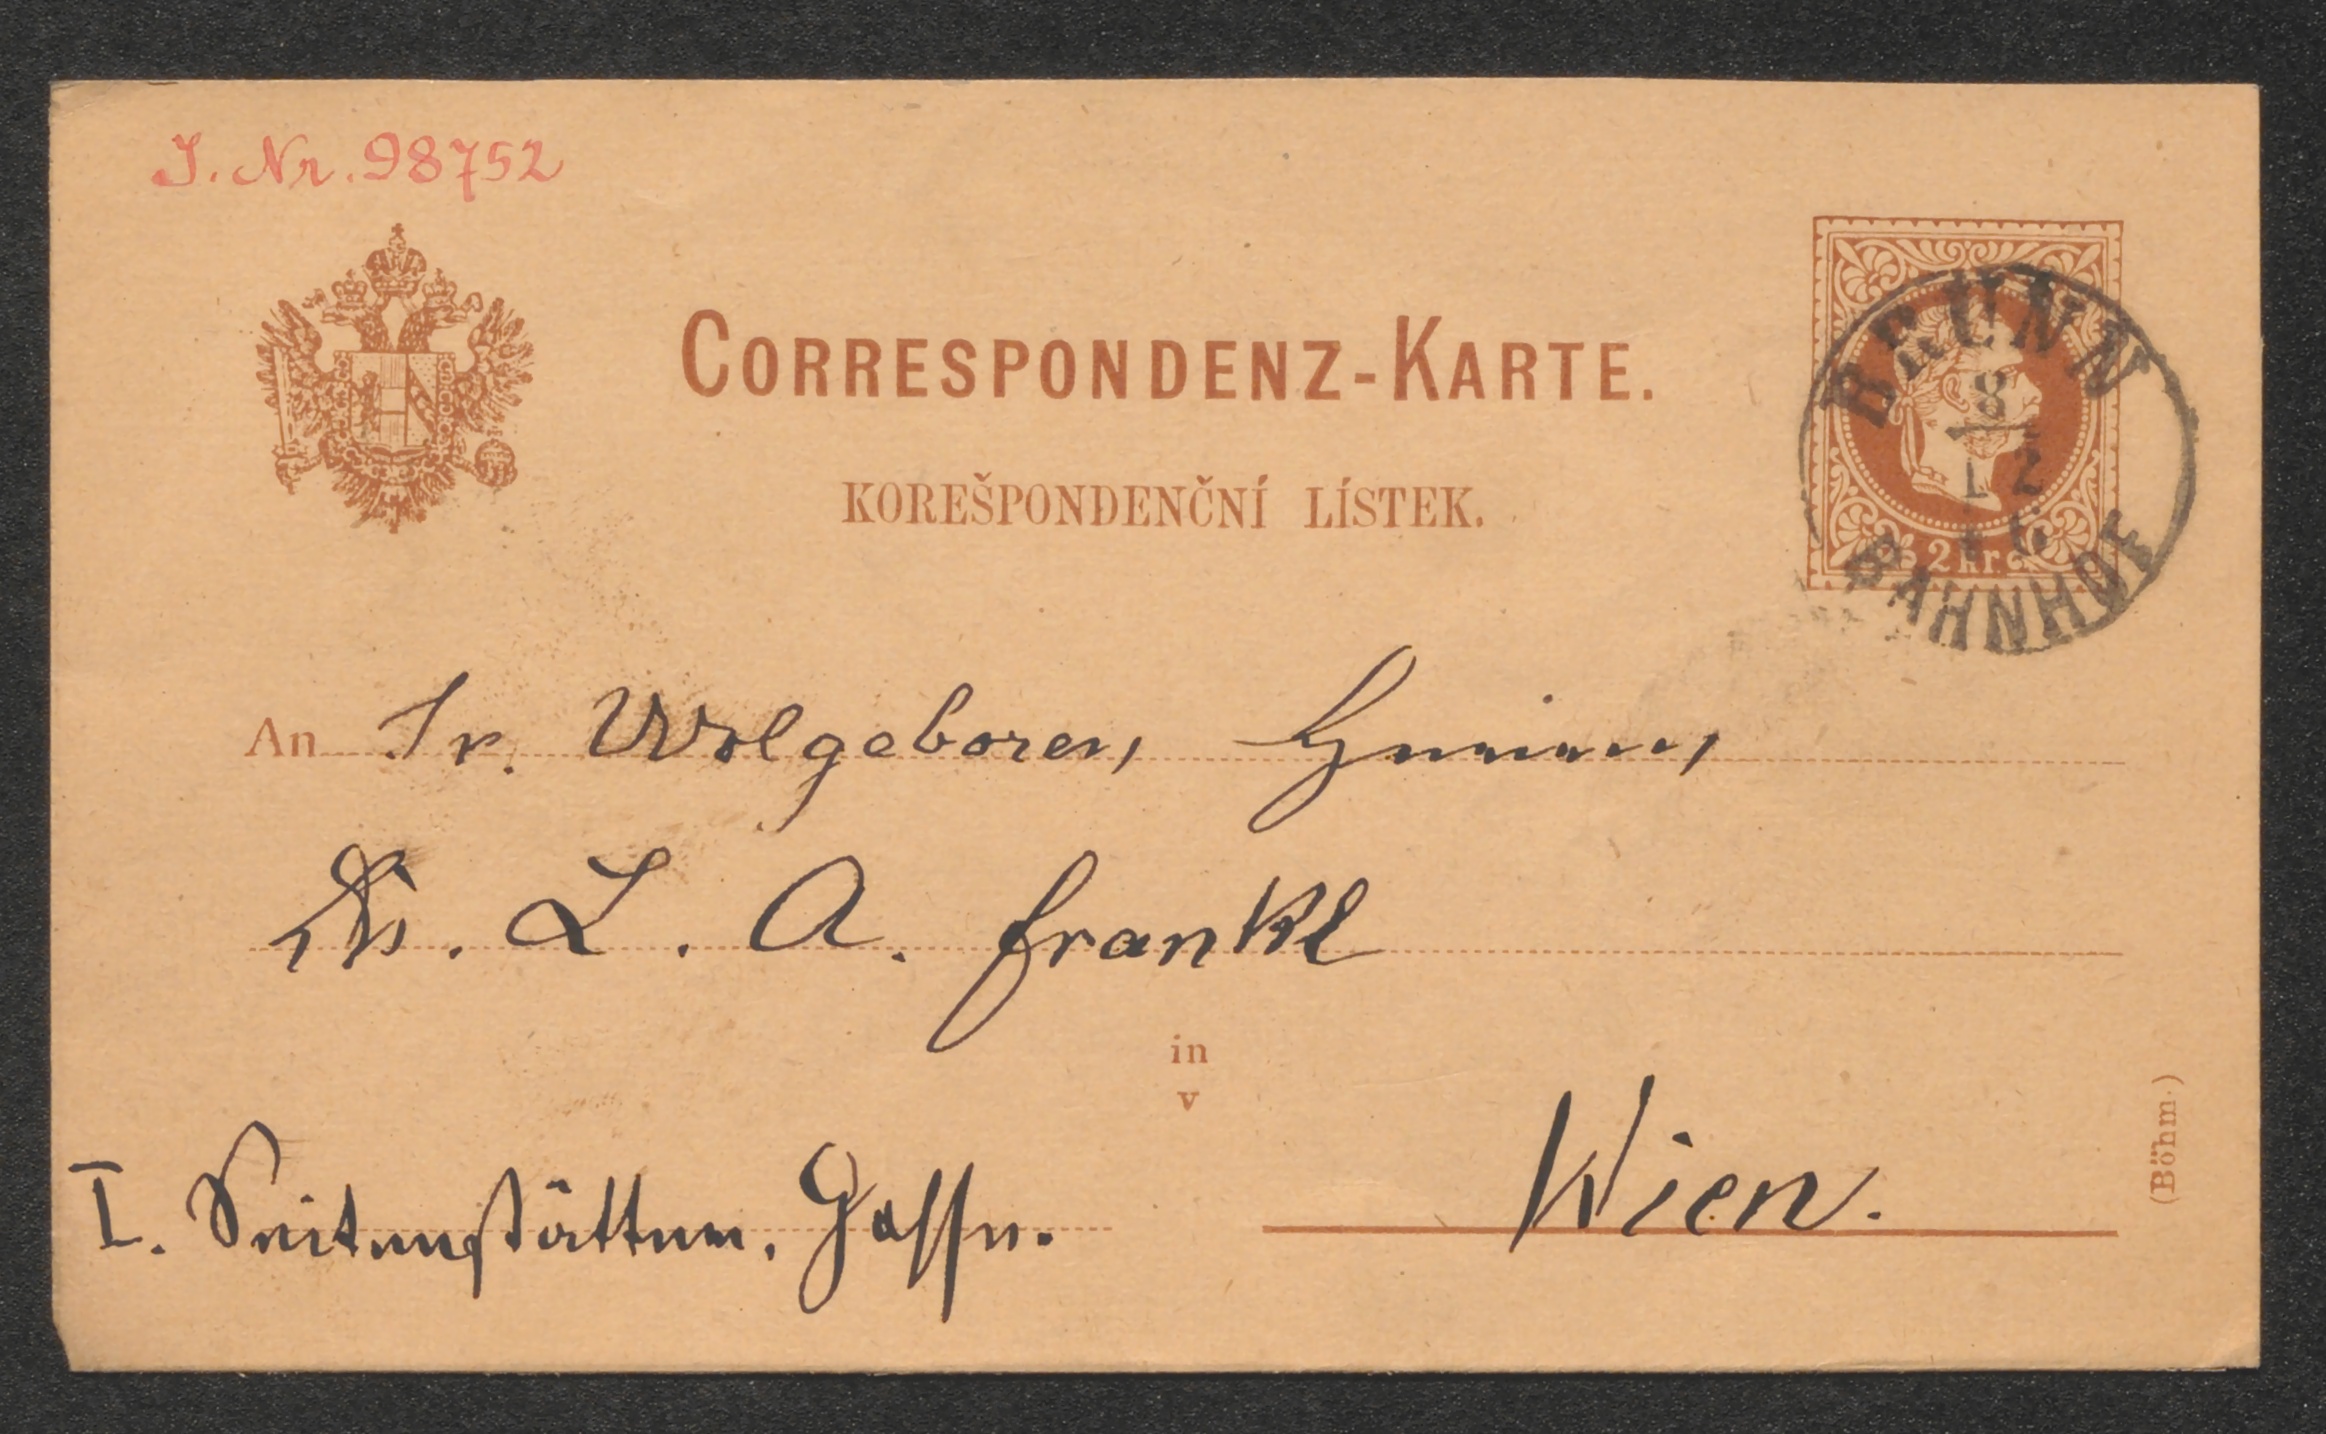 J. Nr. 98752
CORRESPONDENZ-KARTE.
KOREŠPONDENČNÍ LÍSTEK.
BRUNN
8
12
BAHNHOF
2 kr.
An Sr. Wolgeboren, Herrn
Dr. L. A. Frankl
in
v
I. Seitenstätten. Gasse.
Wien.
(Böhm.)